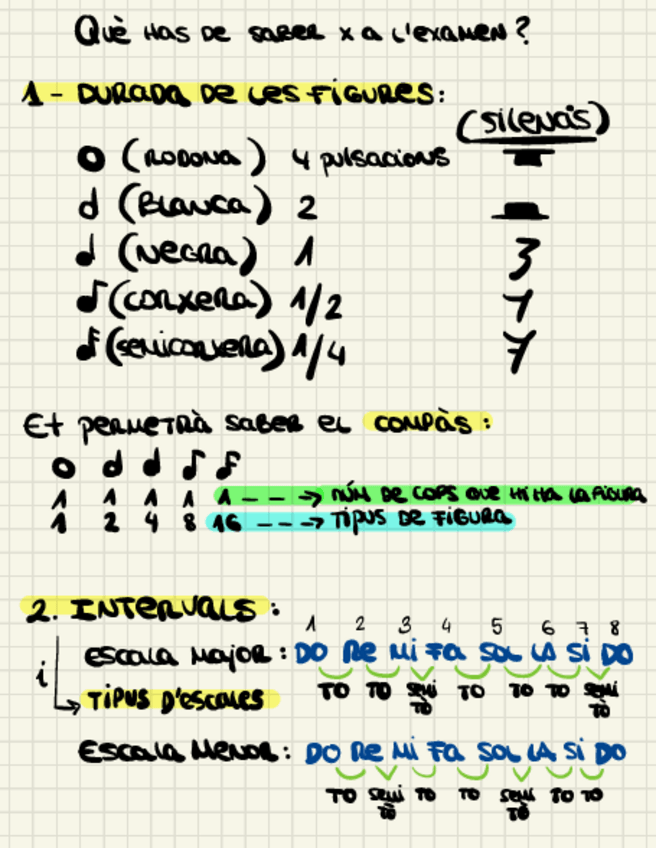 Què has de saber x a l'examen?
1 - DURADA DE LES FIGURES:
(silencis)
(rodona) 4 pulsacions
(Blanca) 2
(negra) 1
(corxera) 1/2
(semicorxera) 1/4
Et permetrà saber el compàs:
1 1 1 1 1 ---> núm de cops que hi ha la figura
1 2 4 8 16 ---> Tipus de figura
2. INTERVALS:
1 2 3 4 5 6 7 8
Escala Major: DO Re Mi Fa Sol LA Si DO
TO TO semi tò TO TO TO semi tò
i Tipus d'escales
Escala Menor: DO Re Mi Fa Sol LA Si DO
TO semi tò TO TO semi tò TO TO